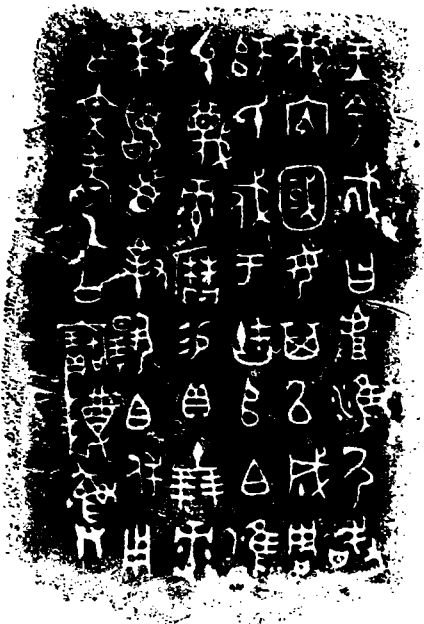 王令𢦚曰𠭯淮尸敢
伐內國女其以成周
師氏戍于古師白雍
父蔑彔曆易貝十朋彔
拜𩒨首對揚白休用
乍文考乙公寶尊彝